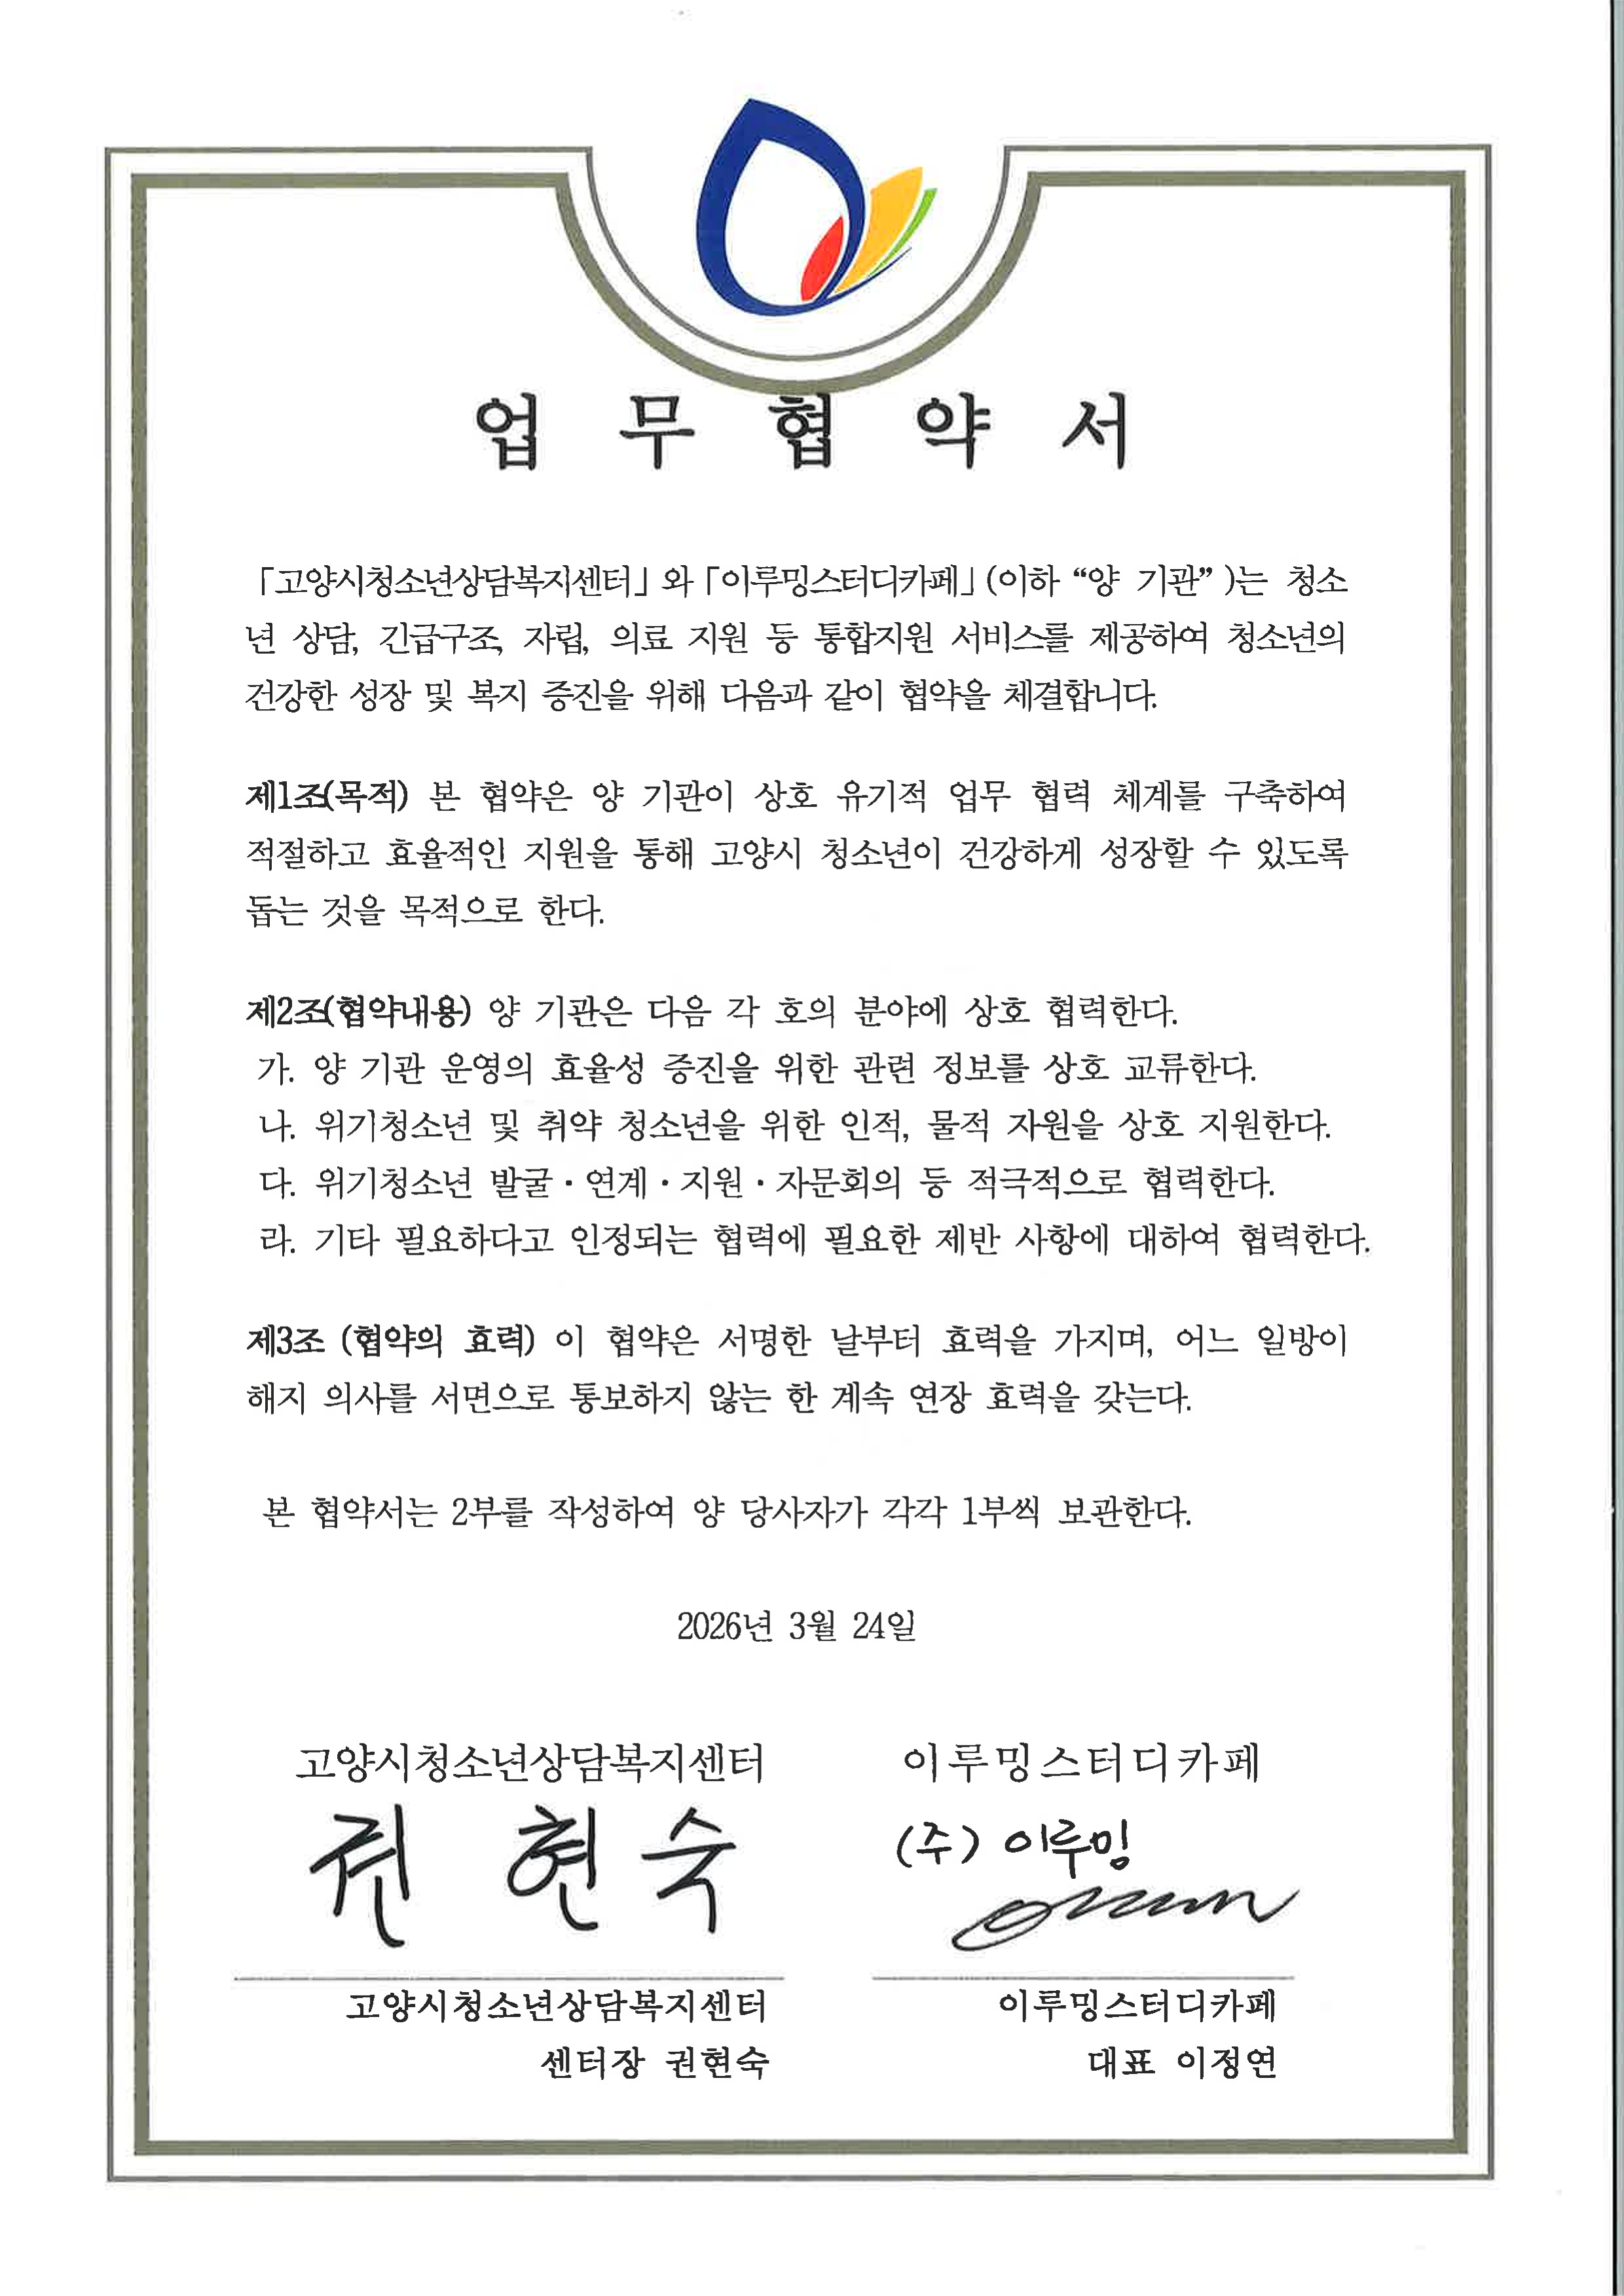 업 무 협 약 서
「고양시청소년상담복지센터」와「이루밍스터디카페」(이하 “양 기관”)는 청소
년 상담, 긴급구조, 자립, 의료 지원 등 통합지원 서비스를 제공하여 청소년의
건강한 성장 및 복지 증진을 위해 다음과 같이 협약을 체결합니다.
제1조(목적) 본 협약은 양 기관이 상호 유기적 업무 협력 체계를 구축하여
적절하고 효율적인 지원을 통해 고양시 청소년이 건강하게 성장할 수 있도록
돕는 것을 목적으로 한다.
제2조(협약내용) 양 기관은 다음 각 호의 분야에 상호 협력한다.
가. 양 기관 운영의 효율성 증진을 위한 관련 정보를 상호 교류한다.
나. 위기청소년 및 취약 청소년을 위한 인적, 물적 자원을 상호 지원한다.
다. 위기청소년 발굴·연계·지원·자문회의 등 적극적으로 협력한다.
라. 기타 필요하다고 인정되는 협력에 필요한 제반 사항에 대하여 협력한다.
제3조 (협약의 효력) 이 협약은 서명한 날부터 효력을 가지며, 어느 일방이
해지 의사를 서면으로 통보하지 않는 한 계속 연장 효력을 갖는다.
본 협약서는 2부를 작성하여 양 당사자가 각각 1부씩 보관한다.
2026년 3월 24일
고양시청소년상담복지센터 이루밍스터디카페
권 현 숙 (주) 이루밍
고양시청소년상담복지센터 이루밍스터디카페
센터장 권현숙 대표 이정연